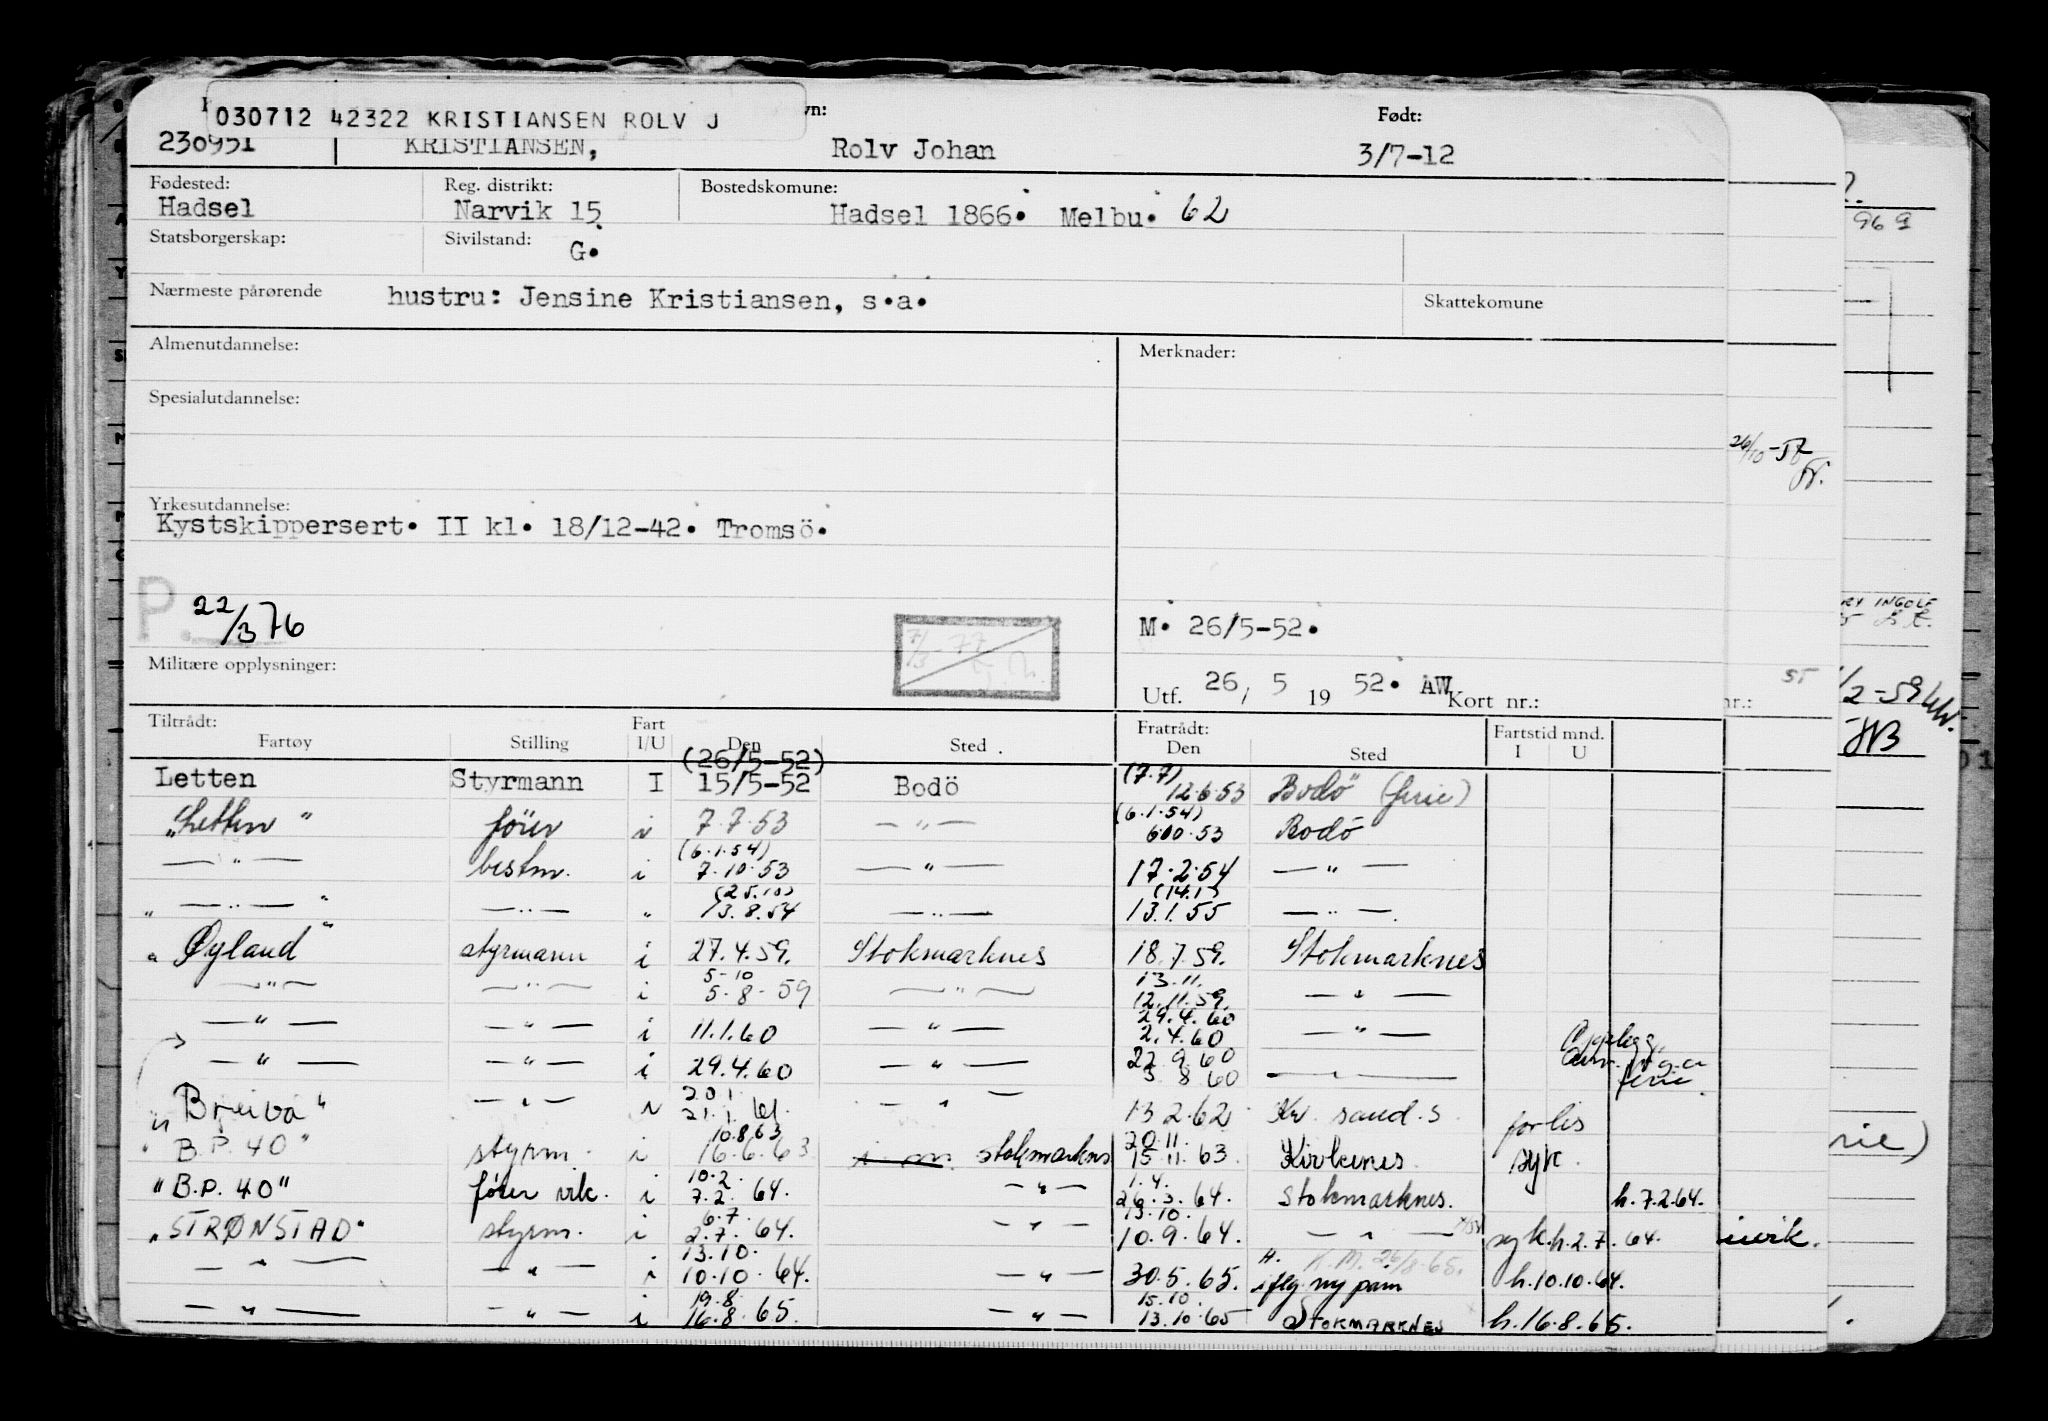 030712 42322 KRISTIANSEN ROLV J
vn: Født:
230951 KRISTIANSEN, Rolv Johan 3/7-12
Fødested: Reg. distrikt: Bostedskomune:
Hadsel Narvik 15 Hadsel 1866. Melbu. 62
Statsborgerskap: Sivilstand: G.
Nærmeste pårørende hustru: Jensine Kristiansen, s.a. Skattekomune
Almenutdannelse: Merknader:
Spesialutdannelse:
Yrkesutdannelse:
Kystskippersert. II kl. 18/12-42. Tromsö.
P. 22/3 76
7/3-77
M. 26/5-52.
Militære opplysninger:
Utf. 26, 5 19 52. AW Kort nr.:
Tiltrådt: Fart Fratrådt: Fartstid mnd.
Fartøy Stilling I/U Den Sted Den Sted I U
(26/5-52) (7.7)
Letten Styrmann I 15/5-52 Bodö 12.6.53 Bodö (ferie)
(6.1.54)
"Letten" fører i 7.7.53 — " — 6.10.53 Bodö
(6.1.54)
— " — bestm. i 7.10.53 — " — 17.2.54 — " —
(25.10) (14.1)
" — " — " — " — " 13.8.54 — " — 13.1.55 — " —
"Øyland" styrmann i 27.4.59. Stokmarknes 18.7.59. Stokmarknes
5-10 13.11.
— " — — " — i 5-8-59 — " — 12.11.59. — " —
29.4.60
— " — — " — i 11.1.60 — " — 2.4.60 — " —
22.9.60 Opplegg
— " — — " — i 29.4.60 — " — 3 8 60 — " — ferie.
20 1
"Breiva" — " — i 21.1.61. — " — 13.2.62 Kr. sand.s. forlis
10.8.63 20.11.
"B.P. 40" styrm. i 16.6.63 stokmarknes 15.11.63. Kirkenes. syk.
10.2. 1.4.
"B.P. 40" fører vik. i 7.2.64. — " — 26.3.64. Stokmarknes. h.7.2.64.
6.7. 13.10.
"STRØNSTAD" styrm. i 2.7.64. — " — 10.9.64. — " — syk. h.2.7.64.
13.10. H. K.M. 26/8.65.
— " — — " — i 10.10.64. — " — 30.5.65. iflg ny pam h.10.10.64.
19.8 15.10.
— " — — " — i 16.8.65. — " — 13.10.65 STOKMARKNES h.16.8.65.
969
26/10-57
RY INGOLF
ST
nr.:
/2-59
HB
rie)